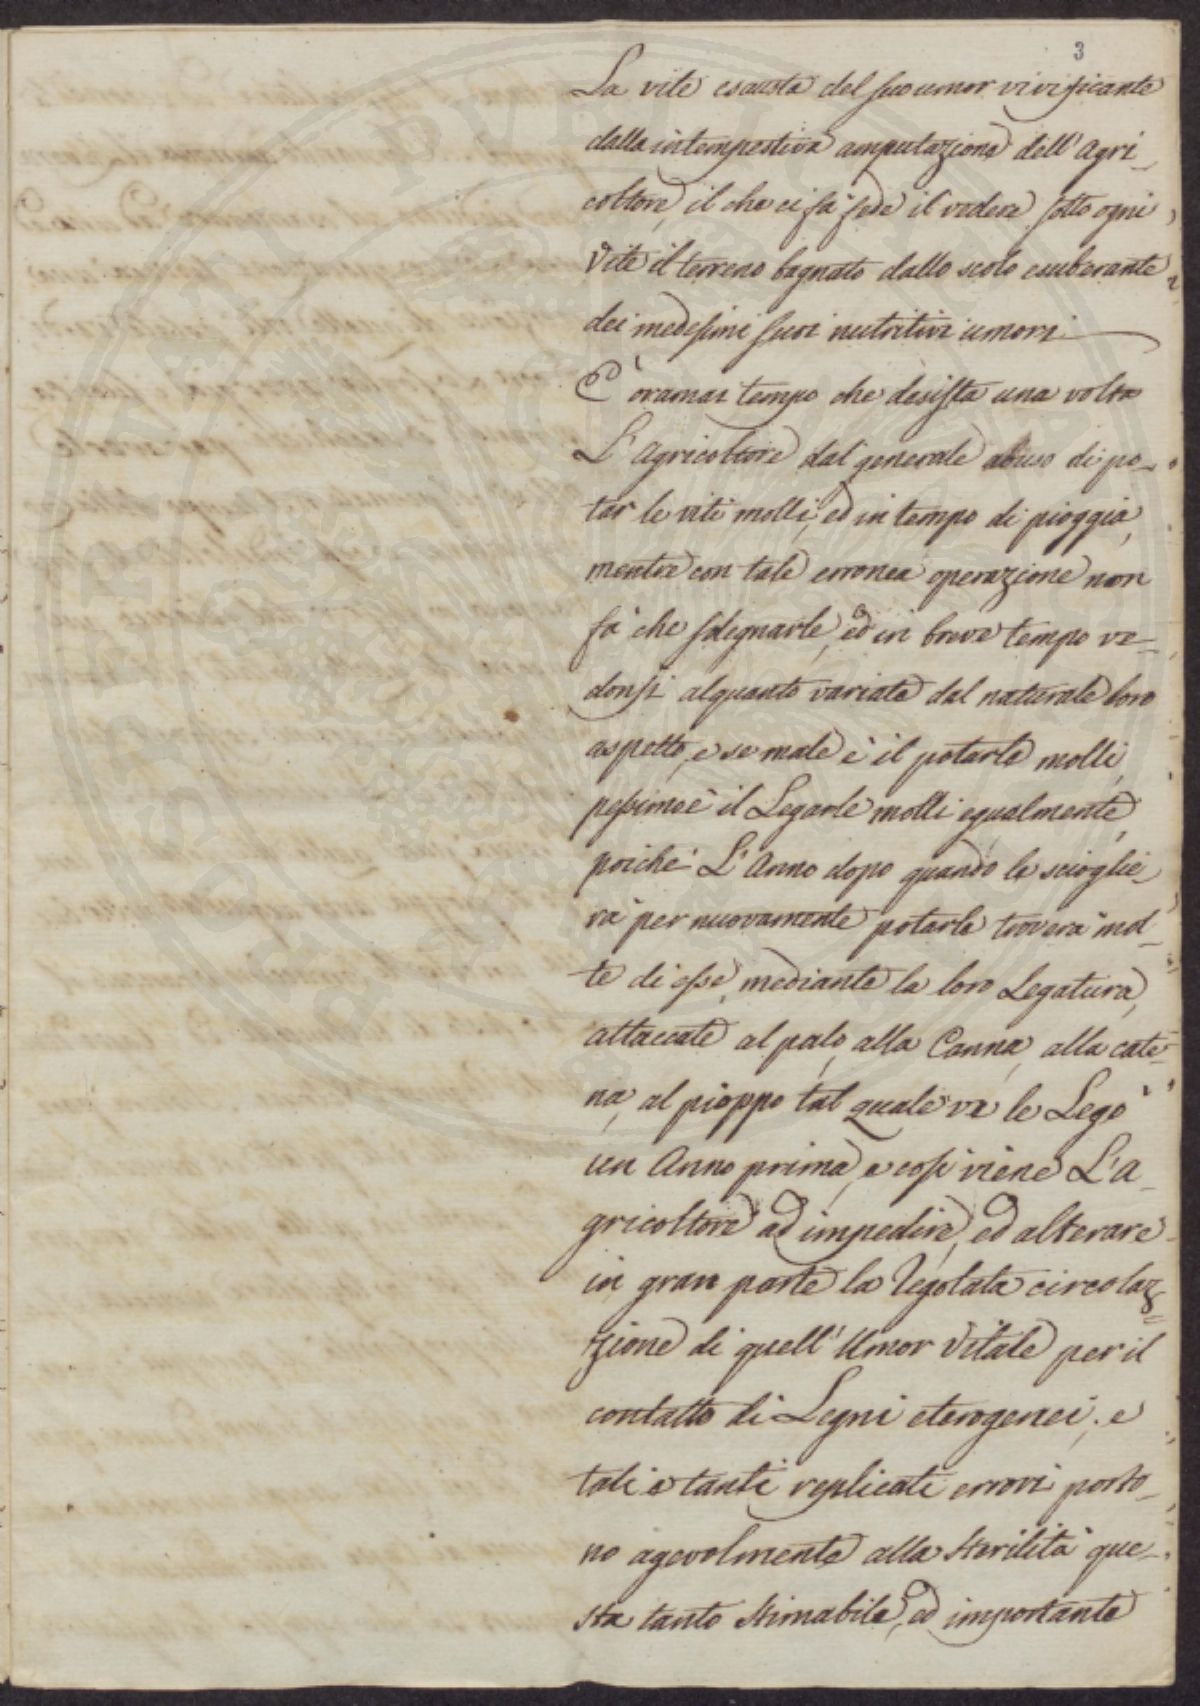 3
La vite esausta del suo umor vivificante
dalla intempestiva amputazione dell'Agri-
coltore, il che ci fà fede il vedere sotto ogni
Vite il terreno bagnato dallo scolo esuberante
dei medesimi suoi nutritivi umori.
È oramai tempo che desista una volta
L'Agricoltore dal generale abuso di po-
tar le viti molli, ed in tempo di pioggia,
mentre con tale erronea operazione non
fà che sdegnarle, ed in breve tempo ve-
donsi alquanto variate dal naturale loro
aspetto, e se male è il potarle molli,
pessimo è il Legarle molli egualmente,
poiché L'Anno dopo quando le scioglie-
rà per nuovamente potarle troverà mol-
te di esse, mediante la loro Legatura,
attaccate al palo, alla Canna, alla cate-
na, al pioppo tal quale ve le Legò
un Anno prima, e così viene L'A-
gricoltore ad impedire, ed alterare
in gran parte la regolata circolaz-
zione di quell'Umor Vitale per il
contatto di Legni eterogenei, e
tali e tanti replicati errori porta-
no agevolmente alla sterilità que-
sta tanto stimabile, ed importante